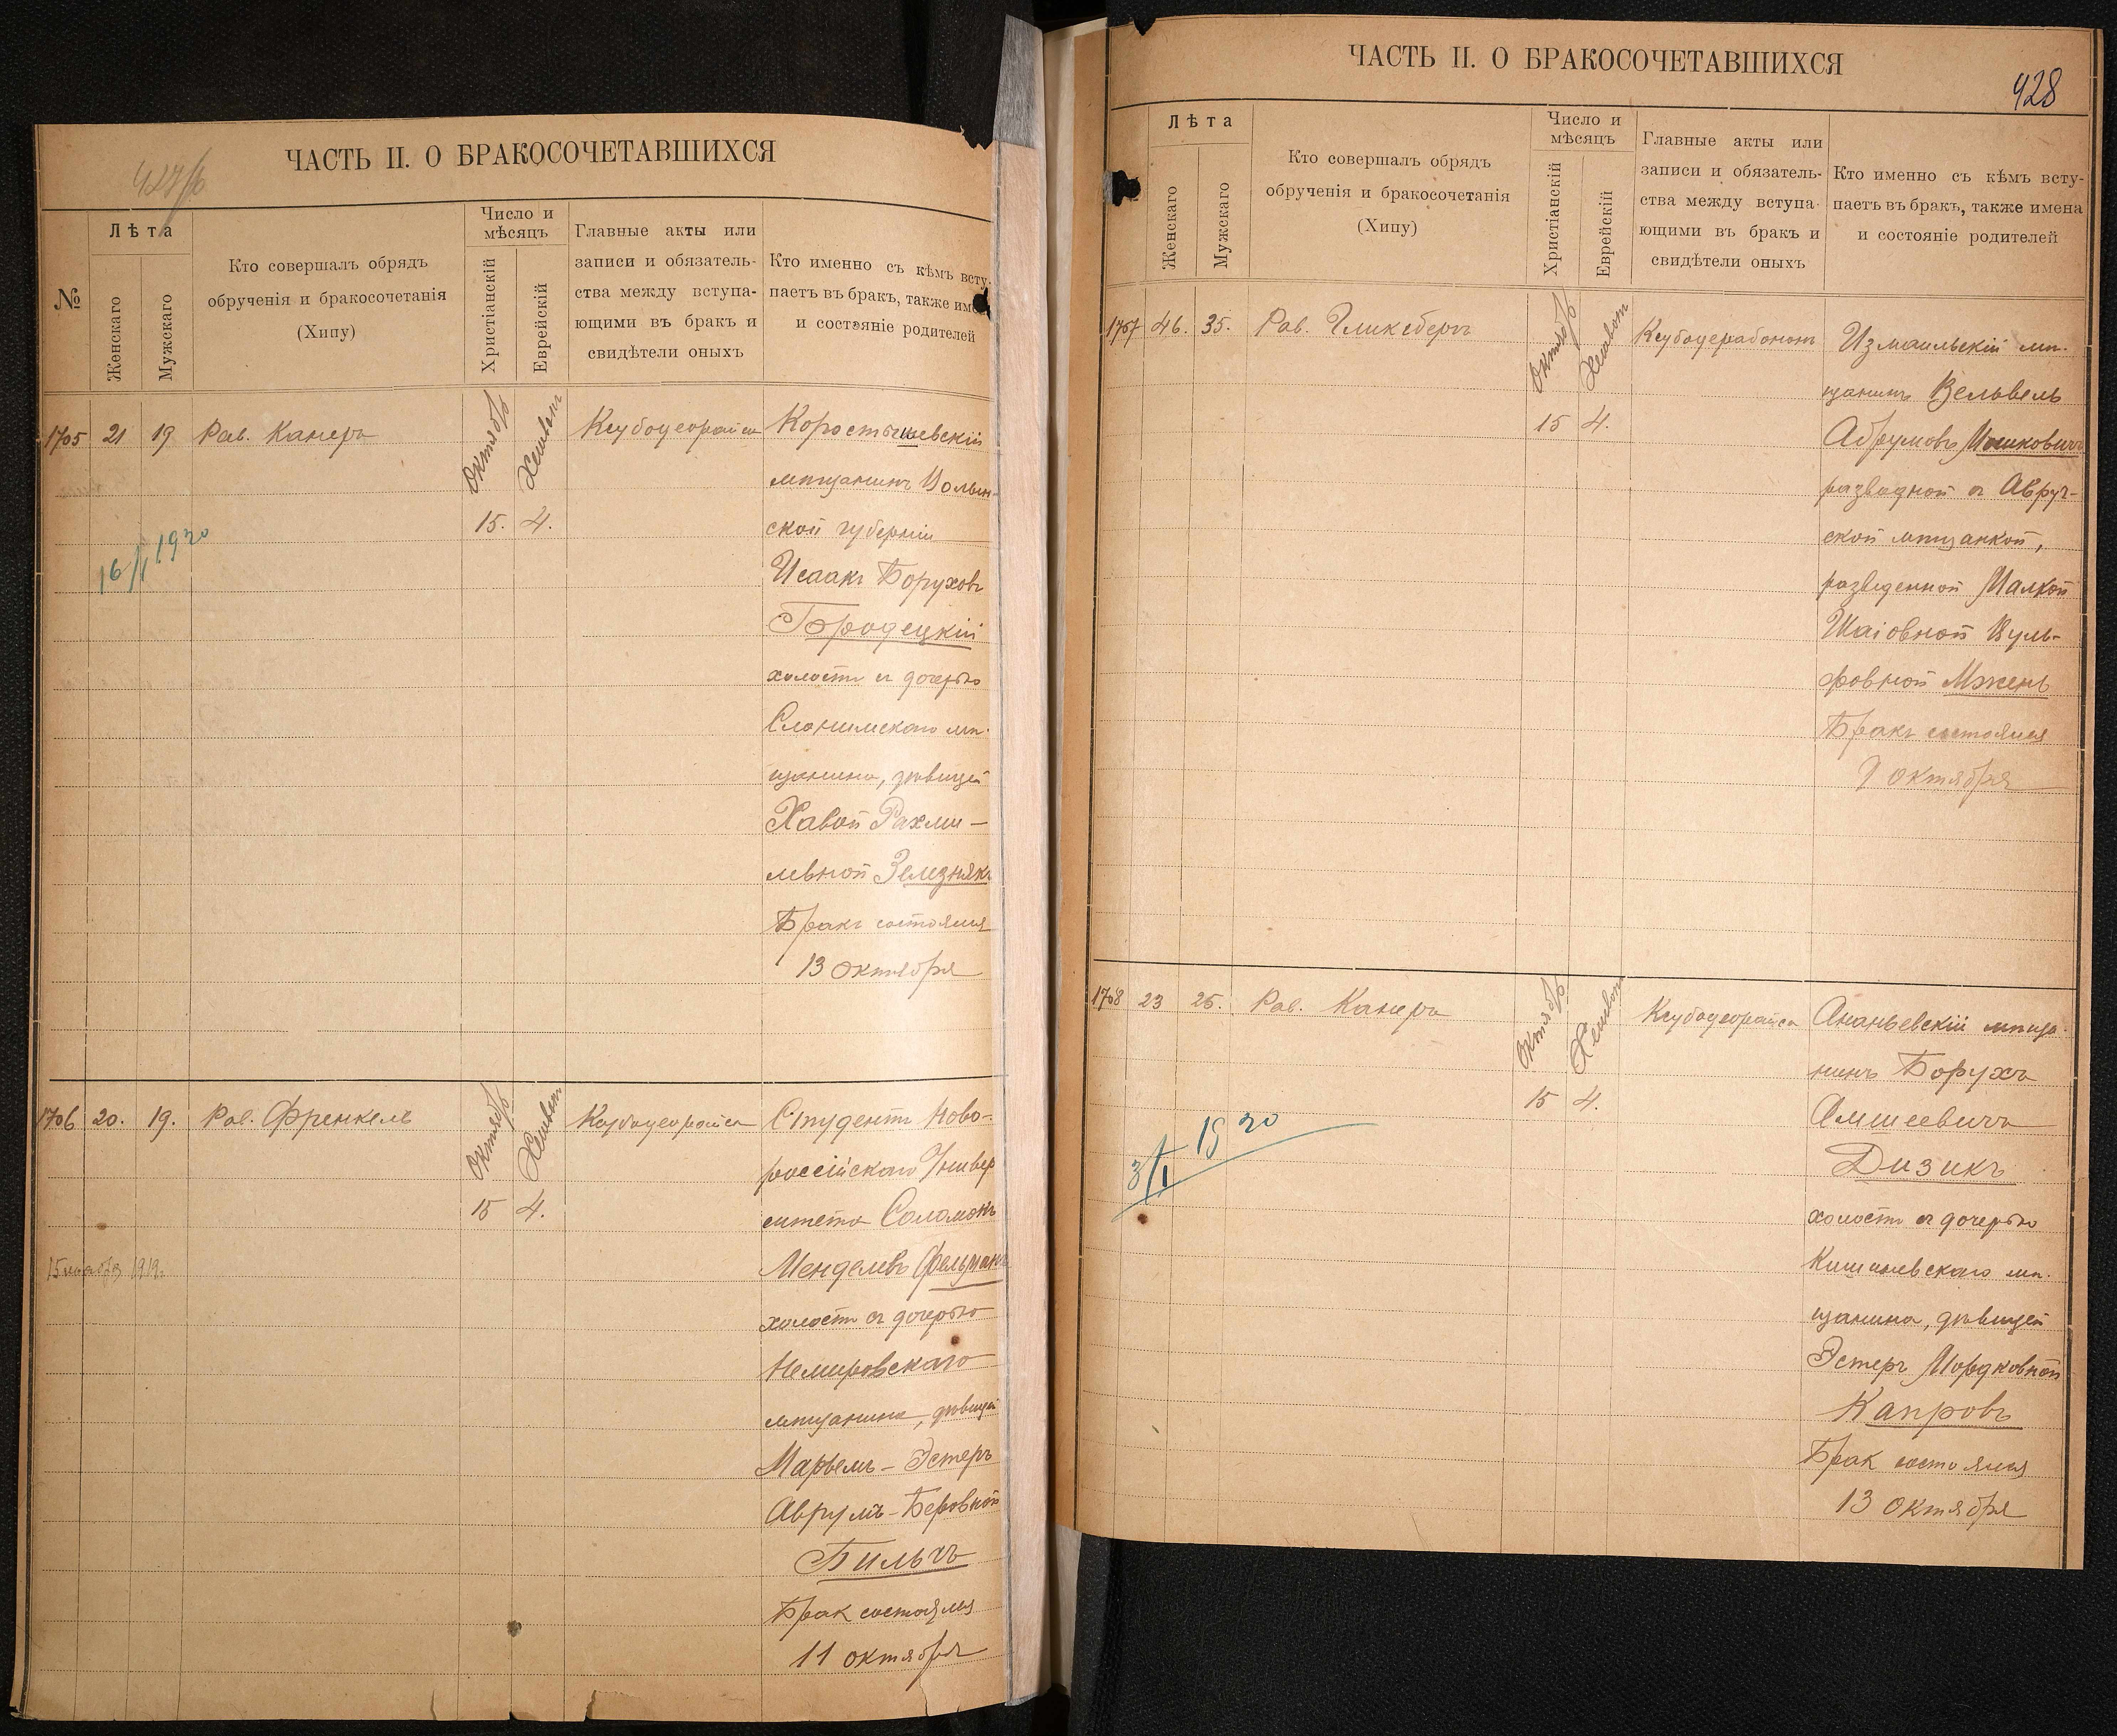 427/б
ЧАСТЬ II. О БРАКОСОЧЕТАВШИХСЯ
№
Лѣта
Женскаго
Мужскаго
Кто совершалъ обрядъ
обрученія и бракосочетанія
(Хипу)
Число и
мѣсяцъ
Христіанскій
Еврейскій
Главные акты или
записи и обязатель-
ства между вступа-
ющими въ бракъ и
свидѣтели оныхъ
Кто именно съ кѣмъ всту-
паетъ въ бракъ, также име
и состояніе родителей
1705 21 19 Рав. Канеръ
Октябрь
Хешвон
15. 4.
Ксубодеорайса
Коростышевскій
мѣщанинъ Волын-
ской губерніи
Исаакъ Боруховъ
Бродецкій
холостъ съ дочерью
Слонимскаго мѣ-
щанина, дѣвицей
Хавой Рахми-
левной Зелезнякъ
Бракъ состоялся
13 октября
16/I 1920
1706 20. 19. Рав. Френкель
Октябрь
Хешвон
15 4.
Ксубодеорайса
Студентъ Ново-
россійскаго Универ
ситета Соломонъ
Менделевъ Фельдманъ
холостъ съ дочерью
Немировскаго
мѣщанина, дѣвицей
Марьемъ-Эстеръ
Аврумъ-Беровной
Бильчъ
Брак состоялся
11 октября
15 ноября 1919г.
428
ЧАСТЬ II. О БРАКОСОЧЕТАВШИХСЯ
Лѣта
Женскаго
Мужскаго
Кто совершалъ обрядъ
обрученія и бракосочетанія
(Хипу)
Число и
мѣсяцъ
Христіанскій
Еврейскій
Главные акты или
записи и обязатель-
ства между вступа-
ющими въ бракъ и
свидѣтели оныхъ
Кто именно съ кѣмъ всту-
паетъ въ бракъ, также имена
и состояніе родителей
1707 46. 35. Рав. Гликсбергъ
Октябрь
Хешвон
15 4.
Ксубодерабонон
Измаильскій мѣ-
щанинъ Вельвель
Абрумовъ Мошковичъ
разводной съ Авруч-
ской мѣщанкой,
разведенной Малкой
Шаіовной Вуль-
фовной Мжень
Бракъ состоялся
9 октября
1708 23 25. Рав. Канеръ
Октябрь
Хешвон
15 4.
Ксубодеорайса
Ананьевскій мѣща-
нинъ Борухъ
Амшеевичъ
Дизикъ
холостъ съ дочерью
Кишиневскаго мѣ-
щанина, дѣвицей
Эстеръ Мордковной
Капровъ
Брак состоялся
13 октября
3/I 1920